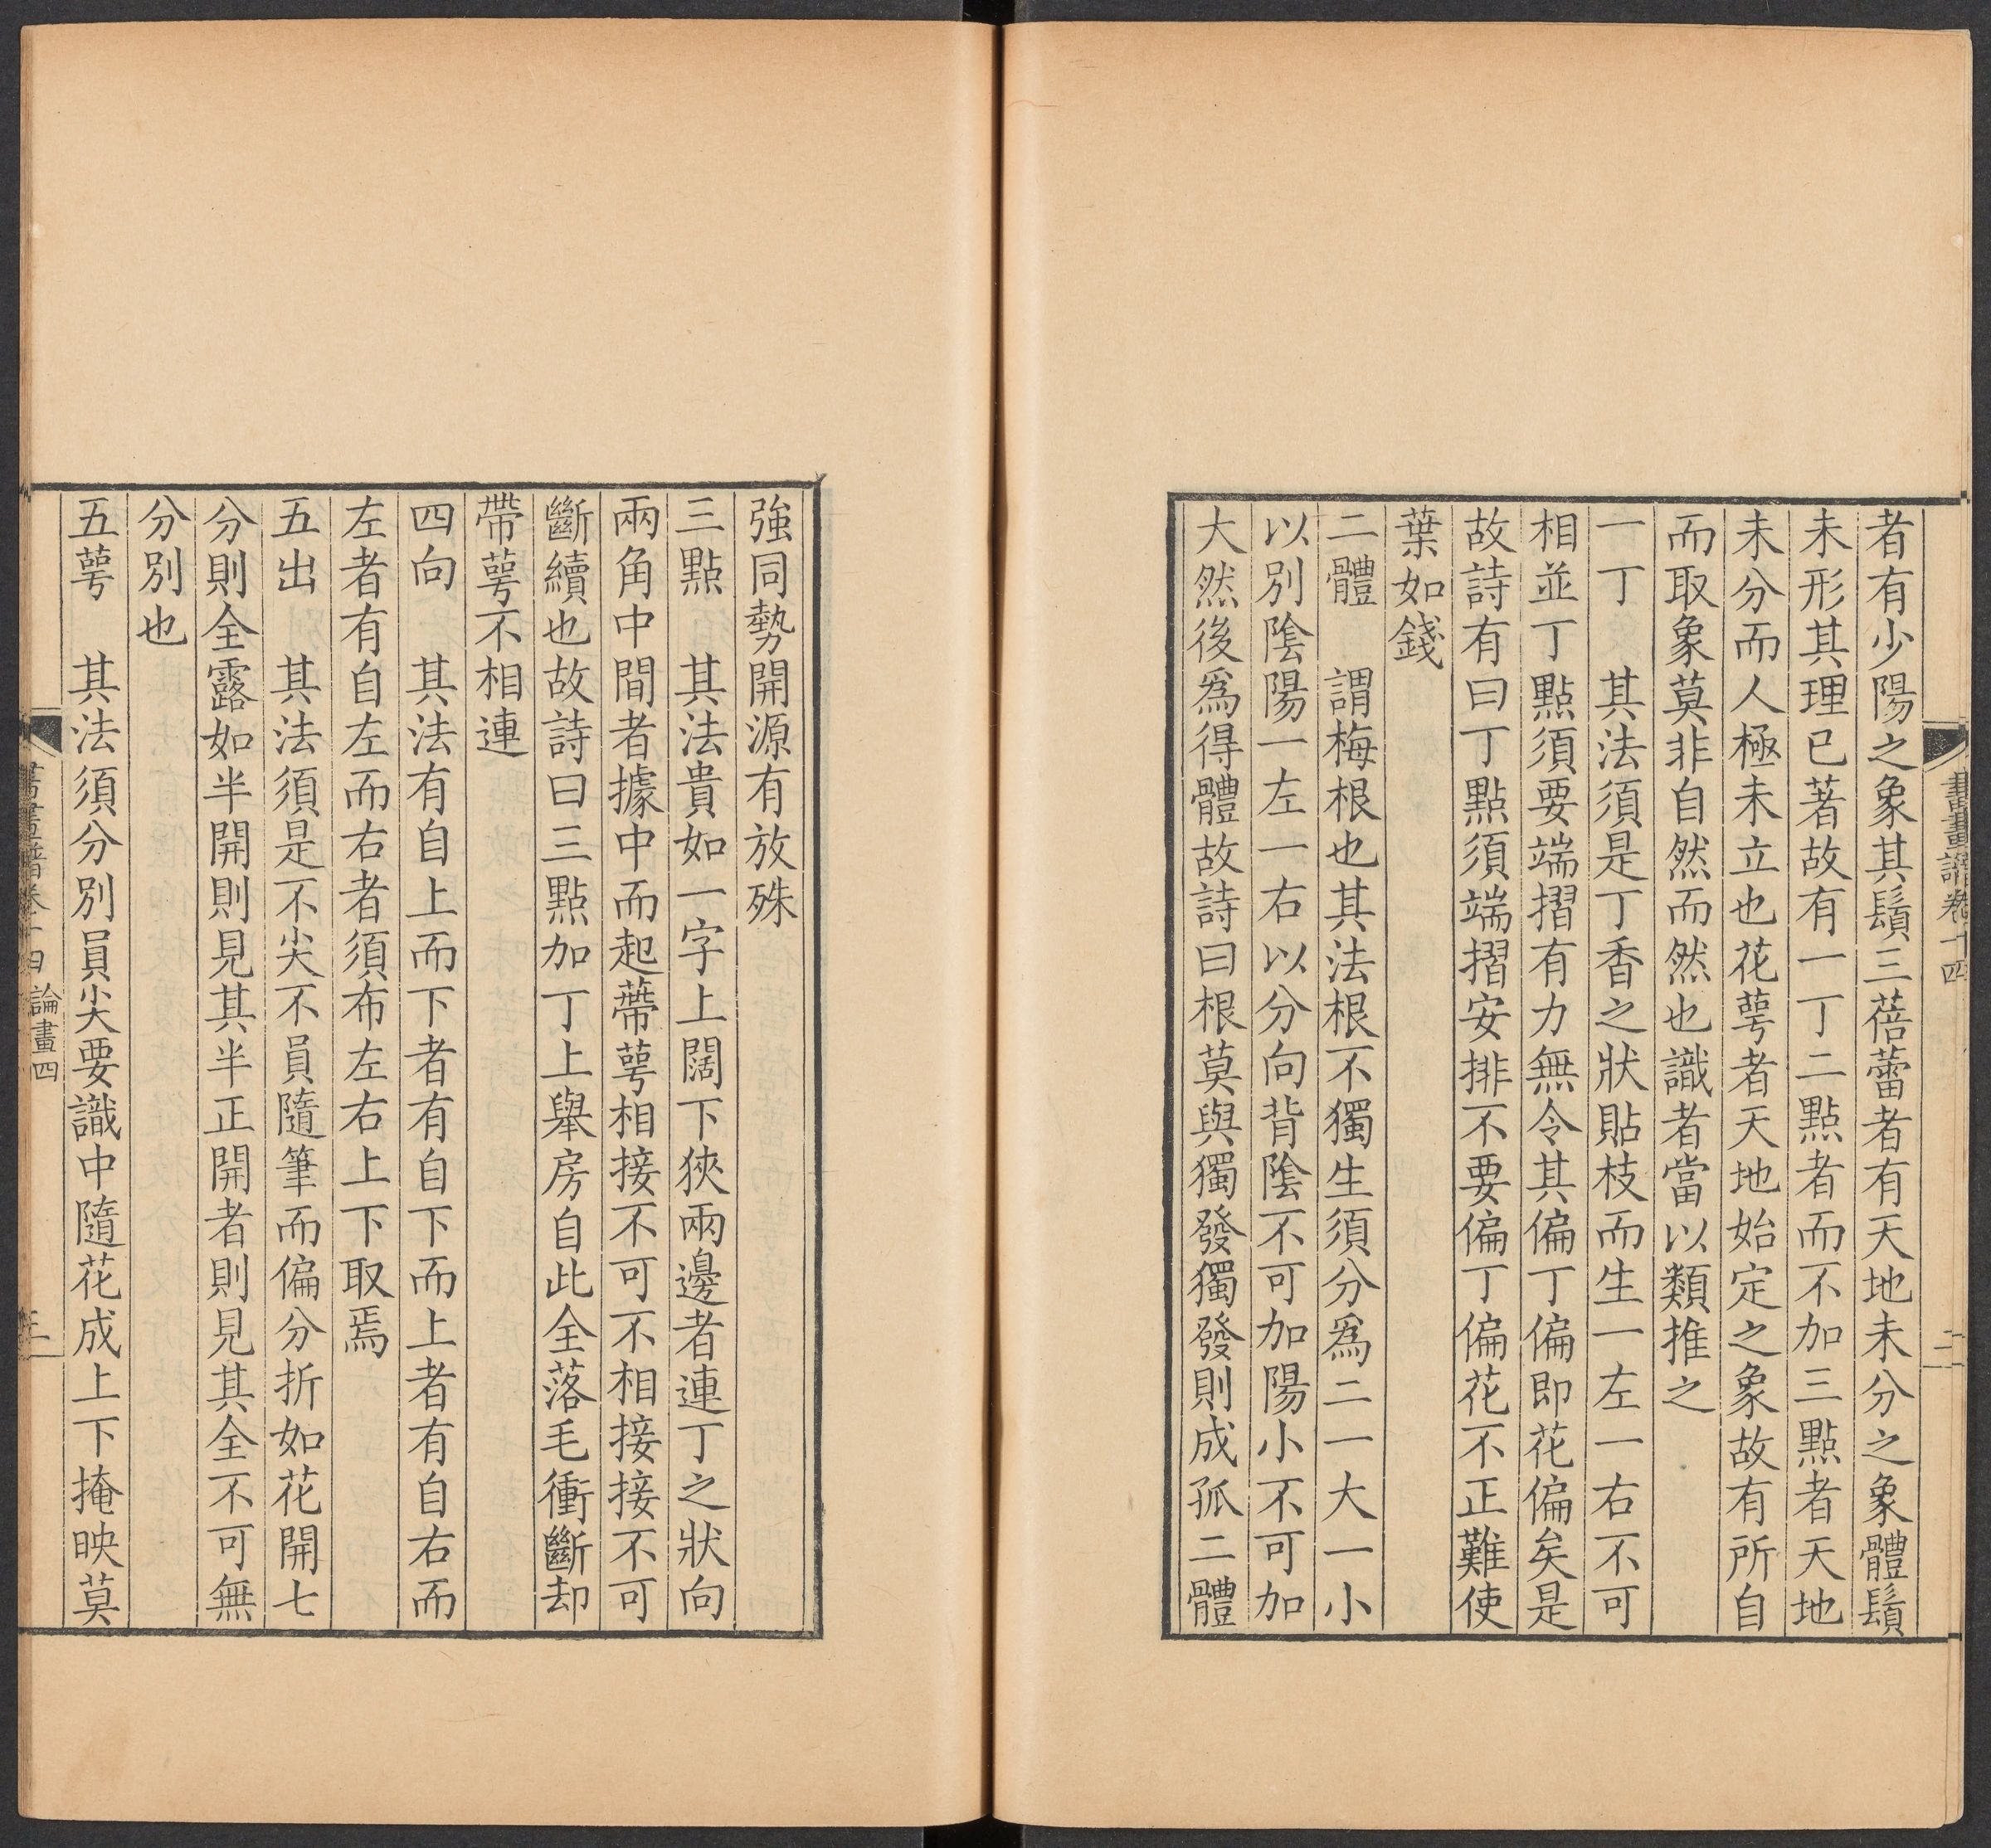 者有少陽之象其鬚三蓓蕾者有天地未分之象體鬚
未形其理已著故有一丁二點者而不加三點者天地
未分而人極未立也花蕚者天地始定之象故有所自
而取象莫非自然而然也識者當以類推之
一丁　其法須是丁香之狀貼枝而生一左一右不可
相並丁點須要端摺有力無令其偏丁偏即花偏矣是
故詩有曰丁點須端摺安排不要偏丁偏花不正難使
葉如錢
二體　謂梅根也其法根不獨生須分爲二一大一小
以別陰陽一左一右以分向背陰不可加陽小不可加
大然後爲得體故詩曰根莫與獨發獨發則成孤二體
強同勢開源有放殊
三點　其法貴如一字上闊下狹兩邊者連丁之狀向
兩角中間者據中而起蔕蕚相接不可不相接接不可
斷續也故詩曰三點加丁上舉房自此全落毛衝斷却
帶蕚不相連
四向　其法有自上而下者有自下而上者有自右而
左者有自左而右者須布左右上下取焉
五出　其法須是不尖不員隨筆而偏分折如花開七
分則全露如半開則見其半正開者則見其全不可無
分別也
五蕚　其法須分別員尖要識中隨花成上下掩映莫
論畫四